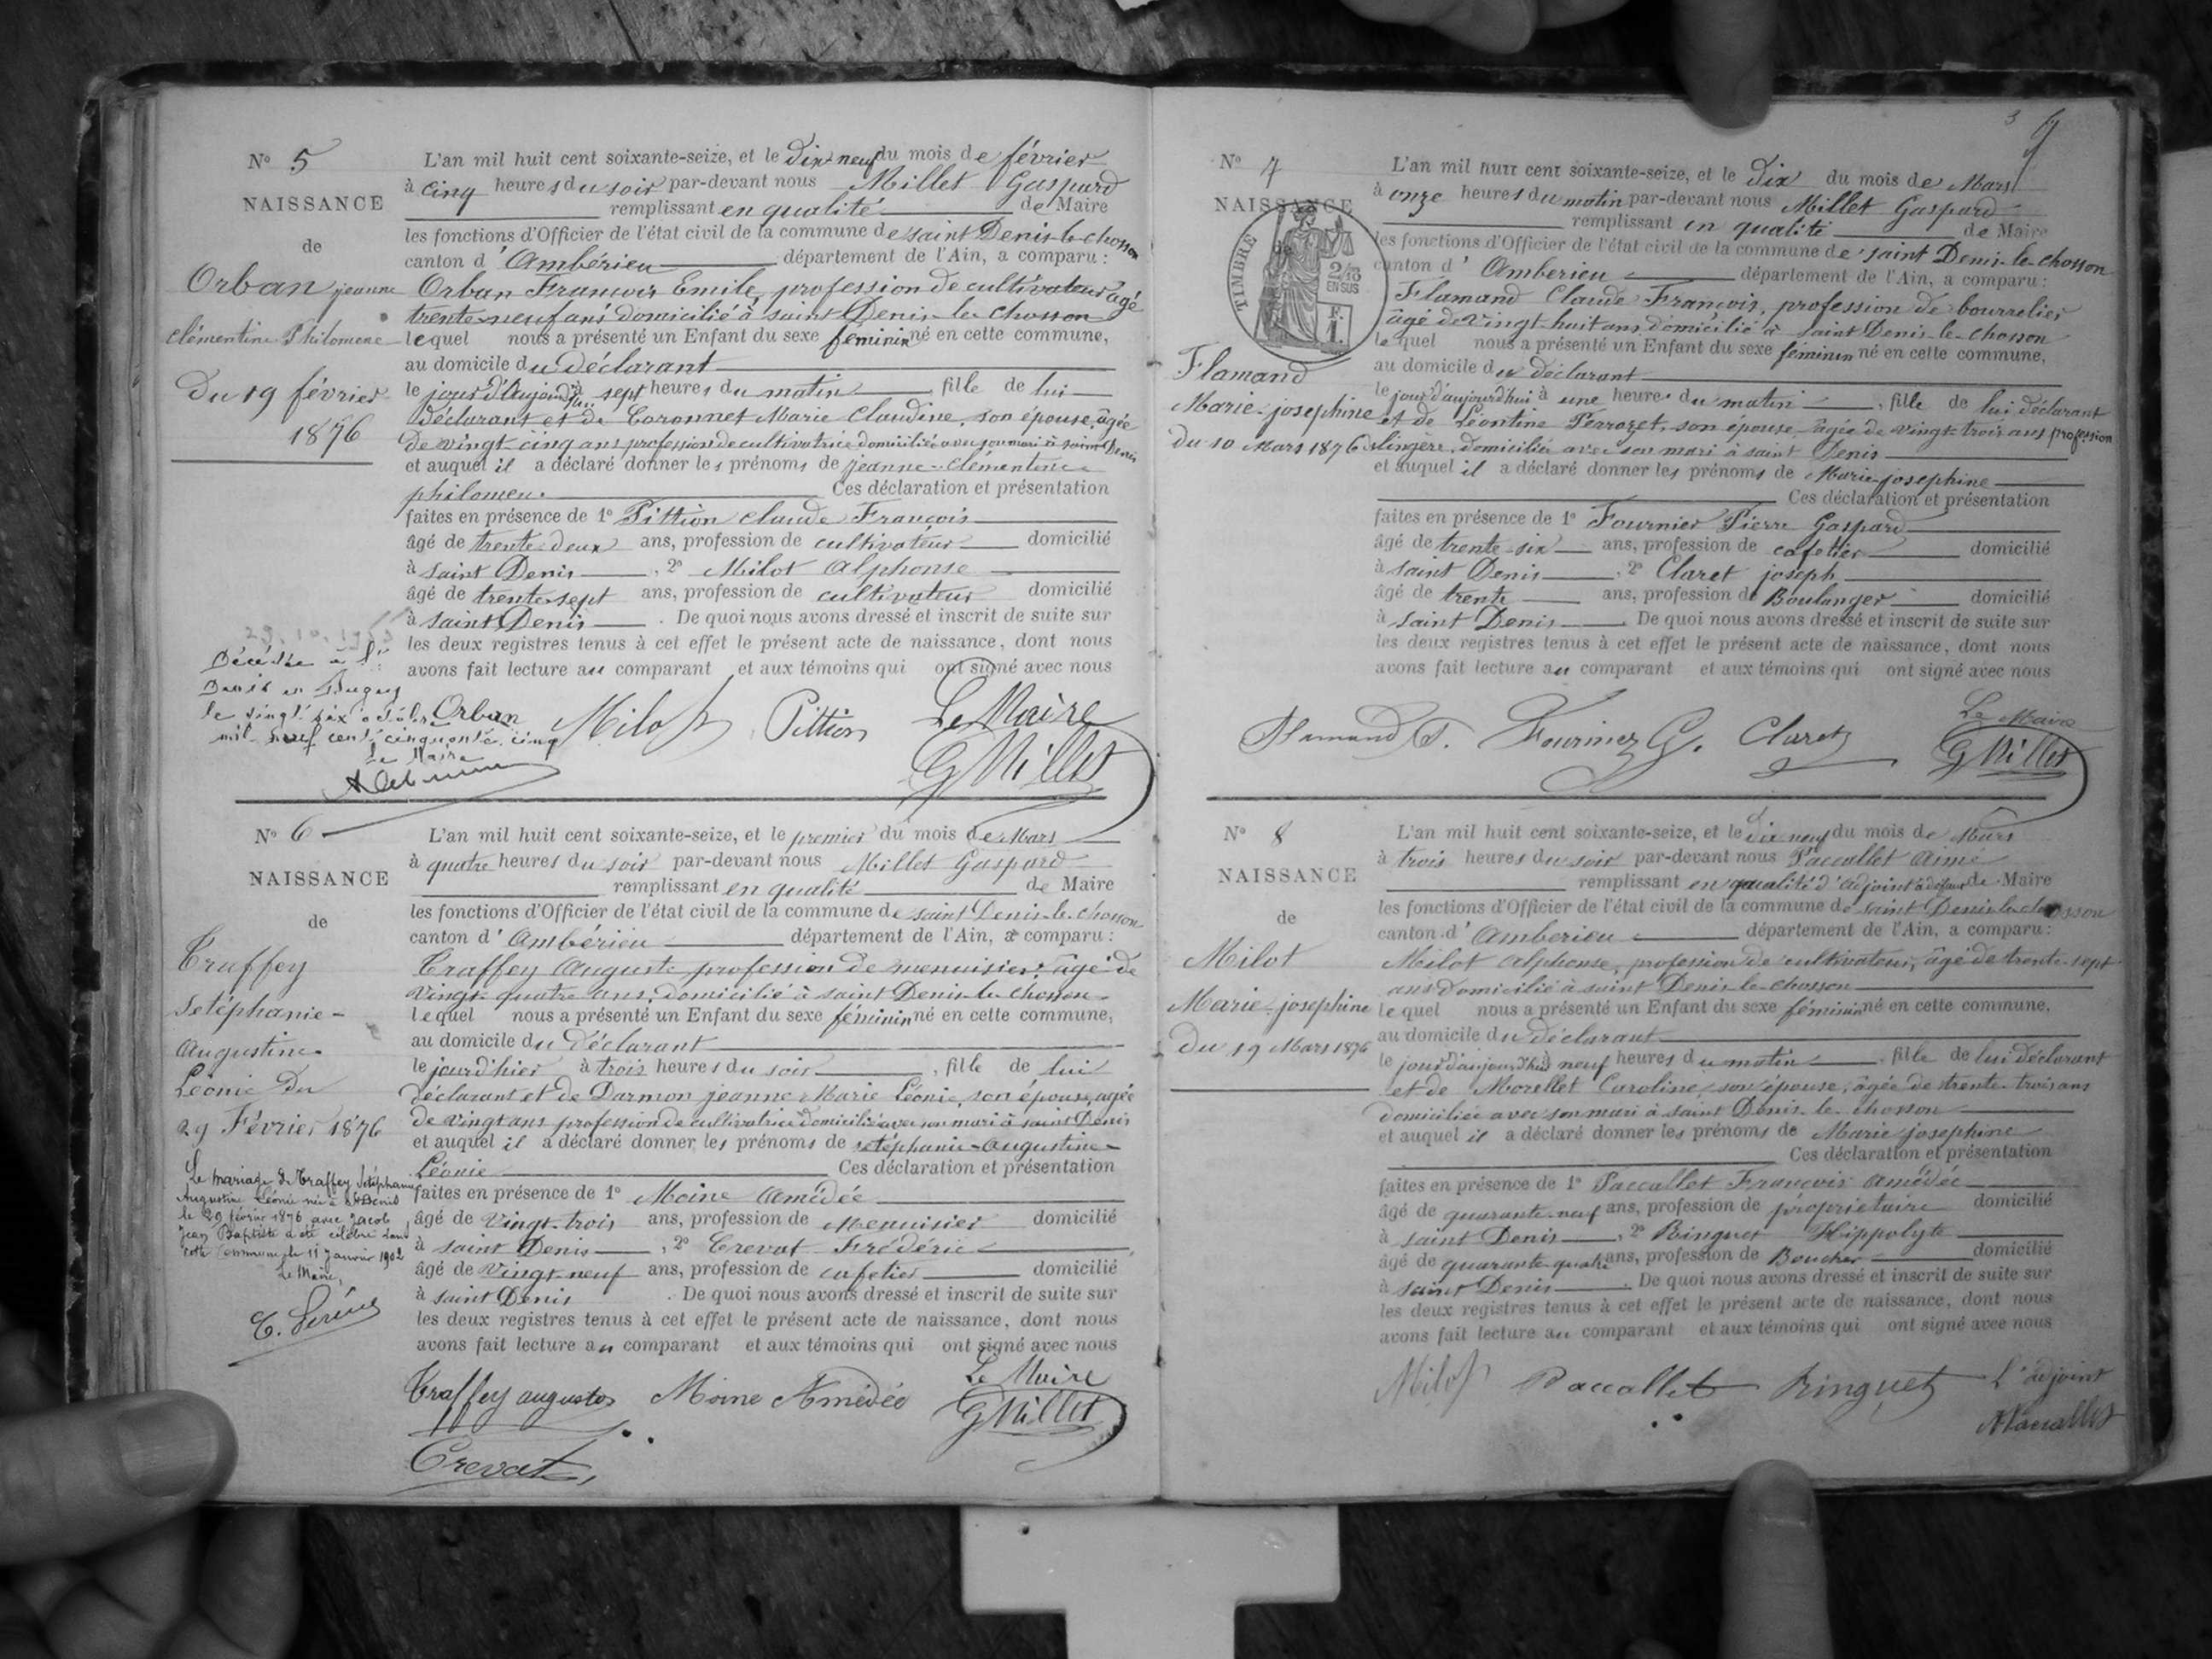 N° 5
NAISSANCE
de
Orban jeanne
clémentine Philomene
Du 19 février
1876
L'an mil huit cent soixante-seize, et le dix-neuf du mois de février
à cinq heures du soir par-devant nous Millet Gaspard
remplissant en qualité de Maire
les fonctions d'Officier de l'état civil de la commune de saint Denis-le-chosson
canton d'Ambérieu département de l'Ain, a comparu :
Orban François Emile, profession de cultivateur âgé
trente-neuf ans domicilié à saint Denis-le-chosson
lequel nous a présenté un Enfant du sexe féminin né en cette commune,
au domicile du déclarant
le jour d'aujourd'hui à sept heures du matin fille de lui
déclarant et de Coronnet Marie Claudine, son épouse, âgée
de vingt-cinq ans profession de cultivatrice domiciliée avec son mari à saint Denis
et auquel il a déclaré donner les prénoms de jeanne-clémentine
philomene Ces déclaration et présentation
faites en présence de 1° Pittion claude François
âgé de trente-deux ans, profession de cultivateur domicilié
à saint Denis, 2° Milot Alphonse
âgé de trente-sept ans, profession de cultivateur domicilié
à saint Denis. De quoi nous avons dressé et inscrit de suite sur
les deux registres tenus à cet effet le présent acte de naissance, dont nous
avons fait lecture au comparant et aux témoins qui ont signé avec nous
Décédée à St
Denis en Bugey
le vingt six octobre
mil neuf cent cinquante cinq
Le Maire
Orban Milot Pittion Le Maire
G Millet
N° 6
NAISSANCE
de
Traffey
Setéphanie-
Augustine
Léonie Du
29 Février 1876
L'an mil huit cent soixante-seize, et le premier du mois de Mars
à quatre heures du soir par-devant nous Millet Gaspard
remplissant en qualité de Maire
les fonctions d'Officier de l'état civil de la commune de saint Denis-le-chosson
canton d'Ambérieu département de l'Ain, a comparu :
Traffey Auguste profession de menuisier, âgé de
vingt-quatre ans, domicilié à saint Denis-le-chosson
lequel nous a présenté un Enfant du sexe féminin né en cette commune,
au domicile du déclarant
le jour d'hier à trois heures du soir, fille de lui
déclarant et de Darmon jeanne-Marie Léonie, son épouse, agée
de vingt ans profession de cultivatrice domiciliée avec son mari à saint Denis
et auquel il a déclaré donner les prénoms de setéphanie-Augustine-
Léonie Ces déclaration et présentation
faites en présence de 1° Moine Amédée
âgé de vingt-trois ans, profession de Menuisier domicilié
à saint Denis, 2° Crevat Frédéric
âgé de vingt-neuf ans, profession de cafetier domicilié
à saint Denis. De quoi nous avons dressé et inscrit de suite sur
les deux registres tenus à cet effet le présent acte de naissance, dont nous
avons fait lecture au comparant et aux témoins qui ont signé avec nous
Le mariage de Traffey Setéphanie
Augustine Léonie née à St Denis
le 29 février 1876 avec Jacob
Jean Baptiste a été célébré dans
cette commune le 11 Janvier 1902
Le Maire,
Traffey auguste Moine Amédée Le Maire
G Millet
Crevat
3
N° 7
NAISSANCE
TIMBRE
2/10
EN SUS
Flamand
Marie-josephine
du 10 Mars 1876
L'an mil huit cent soixante-seize, et le dix du mois de Mars
à onze heures du matin par-devant nous Millet Gaspard
remplissant en qualité de Maire
les fonctions d'Officier de l'état civil de la commune de saint Denis-le-chosson
canton d'Amberieu département de l'Ain, a comparu :
Flamand Claude François, profession de bourrelier
âgé de vingt-huit ans domicilié à saint Denis-le-chosson
lequel nous a présenté un Enfant du sexe féminin né en cette commune,
au domicile du déclarant
le jour d'aujourd'hui à une heure du matin, fille de lui déclarant
et de Léontine Perrozet, son épouse, âgée de vingt-trois ans profession
de lingère, domiciliée avec son mari à saint Denis
et auquel il a déclaré donner les prénoms de Marie-josephine
Ces déclaration et présentation
faites en présence de 1° Fournier Pierre Gaspard
âgé de trente-six ans, profession de cafetier domicilié
à saint Denis, 2° Claret joseph
âgé de trente ans, profession de Boulanger domicilié
à saint Denis. De quoi nous avons dressé et inscrit de suite sur
les deux registres tenus à cet effet le présent acte de naissance, dont nous
avons fait lecture au comparant et aux témoins qui ont signé avec nous
Flamand F. Fournier G. Claret Le Maire
G Millet
N° 8
NAISSANCE
de
Milot
Marie-josephine
Du 19 Mars 1876
L'an mil huit cent soixante-seize, et le dix neuf du mois de Mars
à trois heures du soir par-devant nous Paccallet Aimé
remplissant en qualité d'adjoint à défaut de Maire
les fonctions d'Officier de l'état civil de la commune de saint Denis-le-chosson
canton d'Amberieu département de l'Ain, a comparu :
Milot Alphonse, profession de cultivateur, âgé de trente-sept
ans domicilié à saint Denis-le-chosson
lequel nous a présenté un Enfant du sexe féminin né en cette commune,
au domicile du déclarant
le jour d'aujourd'hui à neuf heures du matin, fille de lui déclarant
et de Morellet Caroline, son épouse, âgée de trente-trois ans
domiciliée avec son mari à saint Denis-le-chosson
et auquel il a déclaré donner les prénoms de Marie josephine
Ces déclaration et présentation
faites en présence de 1° Paccallet François Amédée
âgé de quarante-neuf ans, profession de propriétaire domicilié
à saint Denis, 2° Ringuet Hippolyte
âgé de quarante-quatre ans, profession de Boucher domicilié
à saint Denis. De quoi nous avons dressé et inscrit de suite sur
les deux registres tenus à cet effet le présent acte de naissance, dont nous
avons fait lecture au comparant et aux témoins qui ont signé avec nous
Milot Paccallet Ringuet L'adjoint
A Paccallet